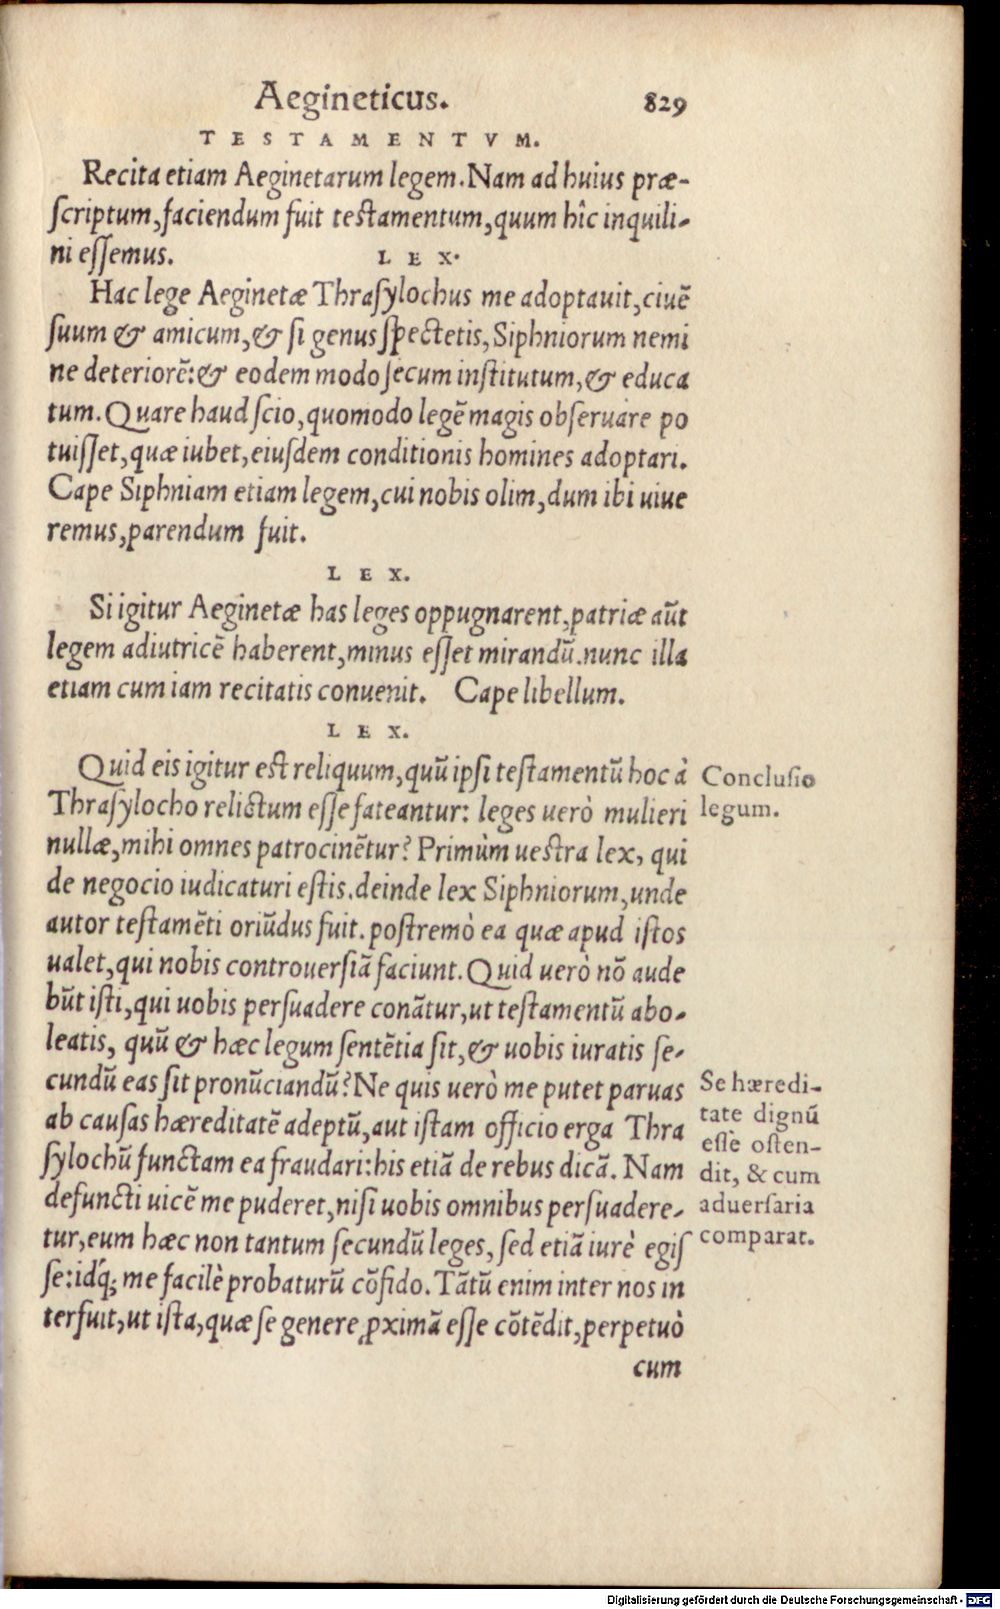 Aegineticus. 829
TESTAMENTVM.
Recita etiam Aeginetarum legem. Nam ad huius præ-
scriptum, faciendum fuit testamentum, quum hîc inquili-
ni essemus. LEX.
Hac lege Aeginetæ Thrasylochus me adoptauit, ciuē
suum & amicum, & si genus spectetis, Siphniorum nemi
ne deteriorē: & eodem modo secum institutum, & educa
tum. Quare haud scio, quomodo legē magis obseruare po
tuisset, quæ iubet, eiusdem conditionis homines adoptari.
Cape Siphniam etiam legem, cui nobis olim, dum ibi uiue
remus, parendum fuit.
LEX.
Si igitur Aeginetæ has leges oppugnarent, patriæ aūt
legem adiutricē haberent, minus esset mirandū. nunc illa
etiam cum iam recitatis conuenit. Cape libellum.
LEX.
Quid eis igitur est reliquum, quū ipsi testamentū hoc à
Thrasylocho relictum esse fateantur: leges uerò mulieri
nullæ, mihi omnes patrocinētur? Primùm uestra lex, qui
de negocio iudicaturi estis. deinde lex Siphniorum, unde
autor testamēti oriūdus fuit. postremò ea quæ apud istos
ualet, qui nobis controuersiā faciunt. Quid uerò nō aude
būt isti, qui uobis persuadere conātur, ut testamentū abo-
leatis, quū & hæc legum sentētia sit, & uobis iuratis se-
cundū eas sit pronūciandū? Ne quis uerò me putet paruas
ab causas hæreditatē adeptū, aut istam officio erga Thra
sylochū functam ea fraudari: his etiā de rebus dicā. Nam
defuncti uicē me puderet, nisi uobis omnibus persuadere-
tur, eum hæc non tantum secundū leges, sed etiā iurè egis
se: idq́; me facilè probaturū cōfido. Tātū enim inter nos in
terfuit, ut ista, quæ se genere ꝓximā esse cōtēdit, perpetuò
cum
Conclusio
legum.
Se hæredi-
tate dignū
esse osten-
dit, & cum
aduersaria
comparat.
Digitalisierung gefördert durch die Deutsche Forschungsgemeinschaft - DFG